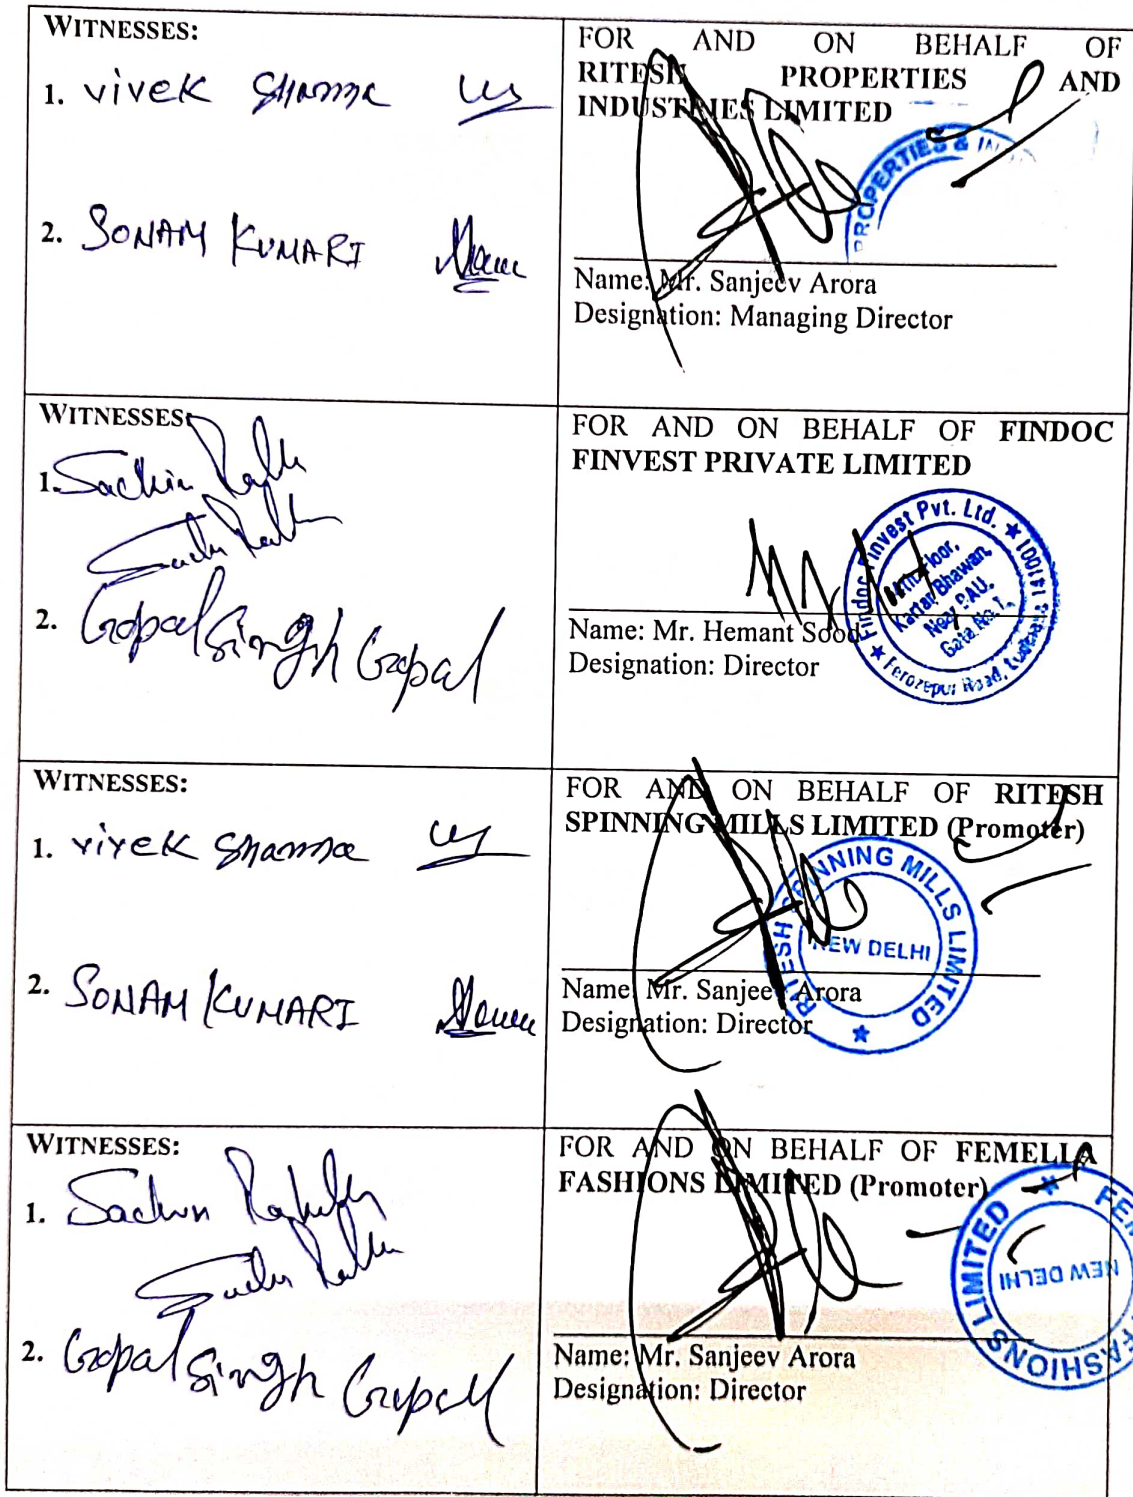 WITNESSES:
1. vivek Sharma
2. SONAM KUMARI
FOR AND ON BEHALF OF
RITESH PROPERTIES AND
INDUSTRIES LIMITED
PROPERTIES &
Name: Mr. Sanjeev Arora
Designation: Managing Director
WITNESSES
1. Sachin
2. Gopal Singh Gopal
FOR AND ON BEHALF OF FINDOC
FINVEST PRIVATE LIMITED
Findoc Finvest Pvt. Ltd. ★ Ferozepur Road, 141001 ★
Floor,
Kartar Bhawan,
Near PAU,
Gate No. 1,
Name: Mr. Hemant Sood
Designation: Director
WITNESSES:
1. vivek Sharma
2. SONAM KUMARI
FOR AND ON BEHALF OF RITESH
SPINNING MILLS LIMITED (Promoter)
RITESH SPINNING MILLS LIMITED ★
NEW DELHI
Name: Mr. Sanjeev Arora
Designation: Director
WITNESSES:
1. Sachin
2. Gopal Singh Gopal
FOR AND ON BEHALF OF FEMELLA
FASHIONS LIMITED (Promoter)
FASHIONS LIMITED ★
NEW DELHI
Name: Mr. Sanjeev Arora
Designation: Director